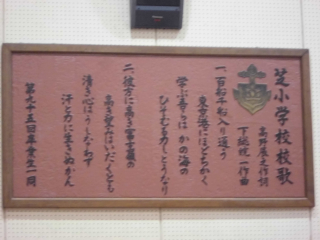 芝小学校校歌
高野辰之作詞
下總皖一作曲
一、百船千船入り通う
東京港にほどちかく
学ぶ吾らは かの海の
ひそむる力したうなり
二、彼方に高き富士の
高き望みはいだくとも
清き心はうしなわず
汗と力に生きぬかん
第九十五回卒業生一同